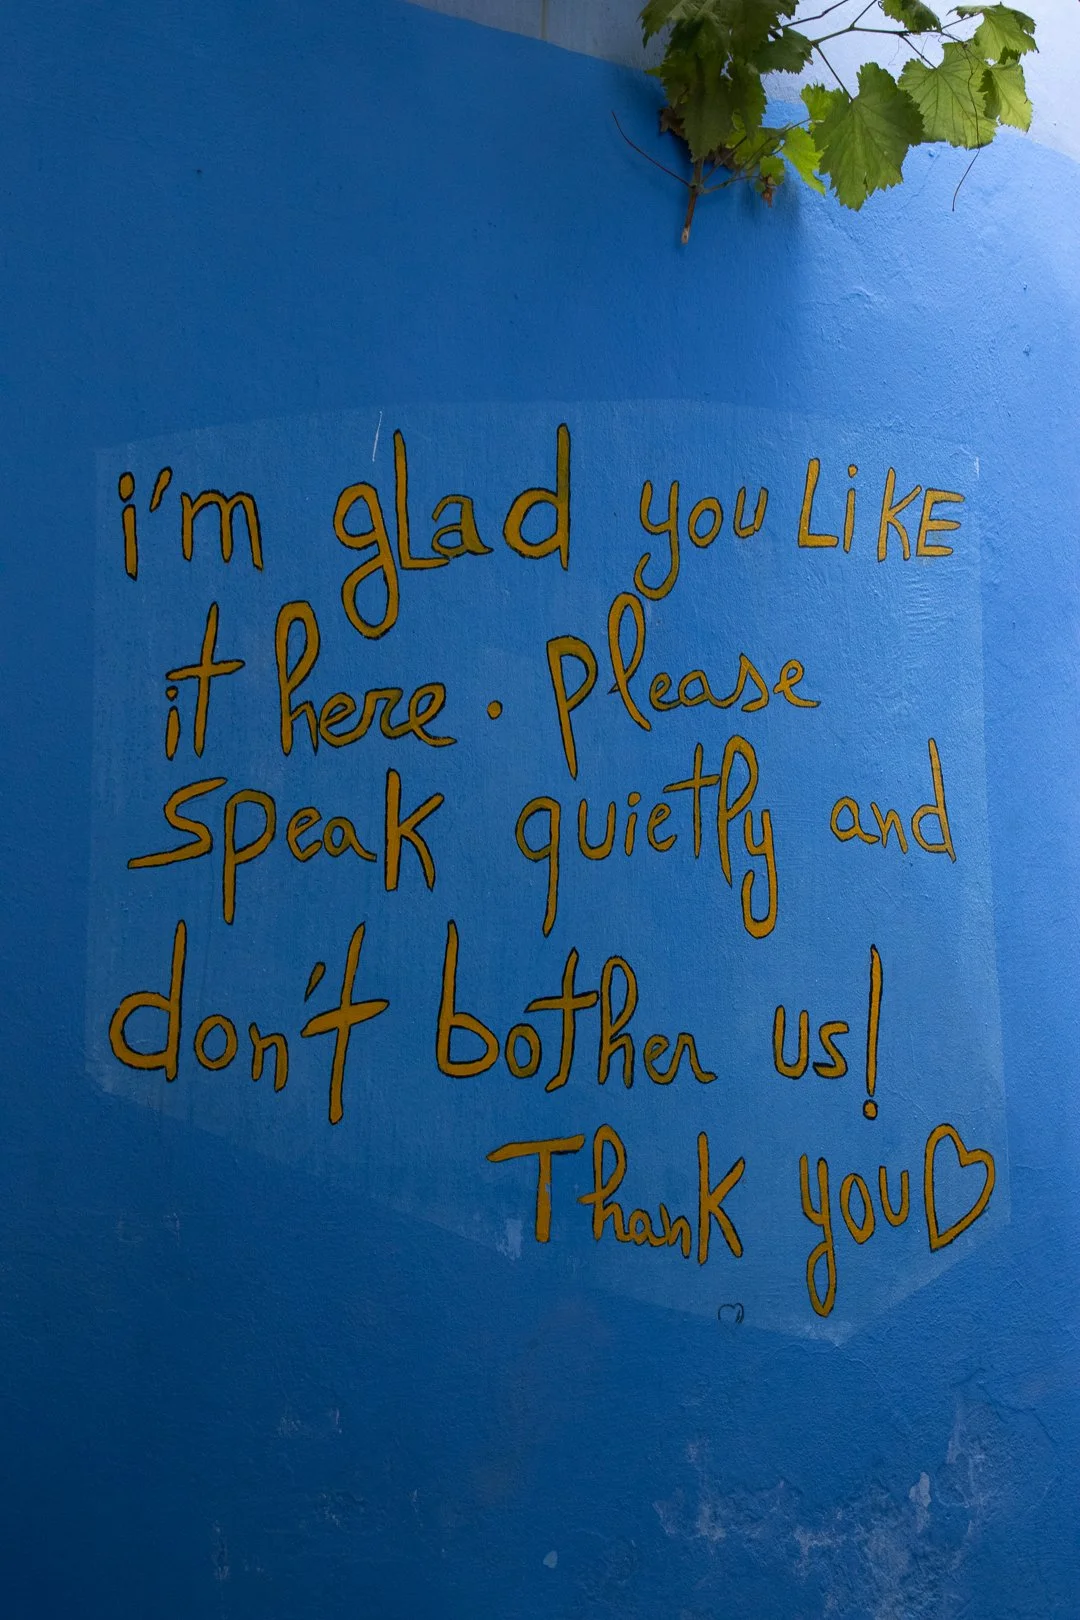 i'm glad you LiKE
it here. please
speak quietly and
don't bother us!
Thank you♡